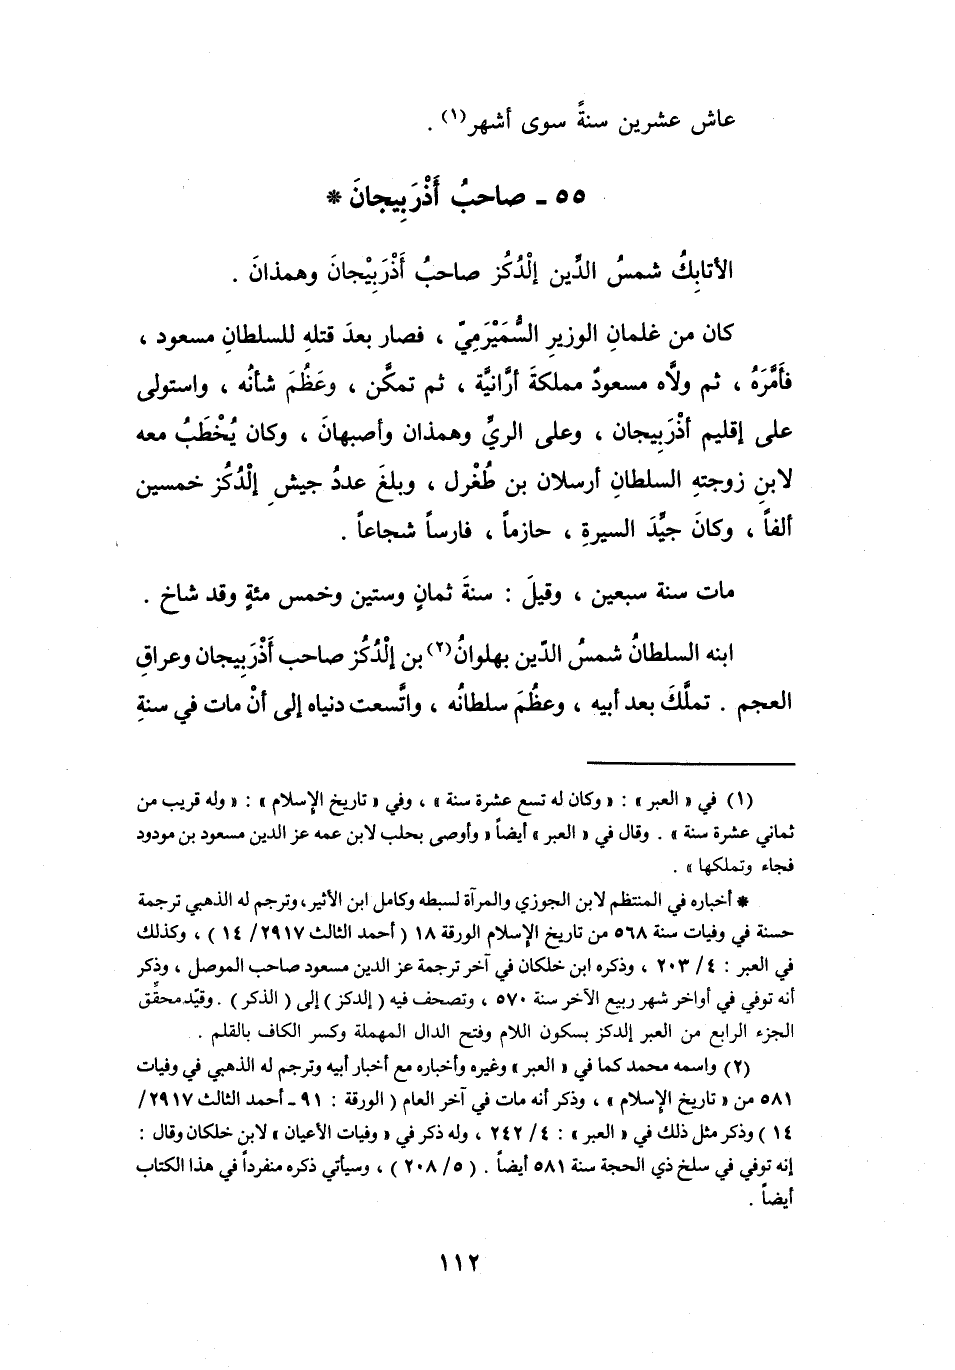 عاش عشرين سنةً سوى أشهر(١) .
٥٥ ـ صاحبُ أَذْرَبِيجانَ *
الأتابِكُ شمسُ الدِّين إلْدُكُز صاحبُ أَذْرَبِيْجانَ وهمذانَ .
كان من غلمانِ الوزيرِ السُّمَيْرَمِيّ ، فصار بعدَ قتلهِ للسلطانِ مسعود ،
فأَمَّرَهُ ، ثم ولاَّه مسعودٌ مملكةَ أرَّانيَّة ، ثم تمكَّن ، وعَظُمَ شأنُه ، واستولى
على إقليم أذْرَبِيجان ، وعلى الريِّ وهمذان وأصبهانَ ، وكان يُخْطَبُ معه
لابنِ زوجتهِ السلطانِ أرسلان بن طُغْرل ، وبلغَ عددُ جيشِ إلْدُكُز خمسين
ألفاً ، وكانَ جيِّدَ السيرةِ ، حازماً ، فارساً شجاعاً .
مات سنة سبعين ، وقيلَ : سنةَ ثمانٍ وستين وخمس مئةٍ وقد شاخ .
ابنه السلطانُ شمسُ الدّين بهلوانُ(٢) بن إلْدُكُز صاحب أَذْرَبِيجان وعراقِ
العجم . تملَّكَ بعد أبيه ، وعظُمَ سلطانُه ، واتَّسعت دنياه إلى أنْ مات في سنةِ
(١) في « العبر » : « وكان له تسع عشرة سنة » ، وفي « تاريخ الإسلام » : « وله قريب من
ثماني عشرة سنة » . وقال في « العبر » أيضاً « وأوصى بحلب لابن عمه عز الدين مسعود بن مودود
فجاء وتملكها » .
* أخباره في المنتظم لابن الجوزي والمرآة لسبطه وكامل ابن الأثير، وترجم له الذهبي ترجمة
حسنة في وفيات سنة ٥٦٨ من تاريخ الإسلام الورقة ١٨ ( أحمد الثالث ٢٩١٧/ ١٤ ) ، وكذلك
في العبر : ٤/ ٢٠٣ ، وذكره ابن خلكان في آخر ترجمة عز الدين مسعود صاحب الموصل ، وذكر
أنه توفي في أواخر شهر ربيع الآخر سنة ٥٧٠ ، وتصحف فيه ( إلدكز ) إلى ( الذكر ) . وقيّد محقِّق
الجزء الرابع من العبر إلدكز بسكون اللام وفتح الدال المهملة وكسر الكاف بالقلم .
(٢) واسمه محمد كما في « العبر » وغيره وأخباره مع أخبار أبيه وترجم له الذهبي في وفيات
٥٨١ من « تاريخ الإسلام » ، وذكر أنه مات في آخر العام ( الورقة : ٩١ ـ أحمد الثالث ٢٩١٧/
١٤ ) وذكر مثل ذلك في « العبر » : ٤/ ٢٤٢ ، وله ذكر في « وفيات الأعيان » لابن خلكان وقال :
إنه توفي في سلخ ذي الحجة سنة ٥٨١ أيضاً . ( ٥/ ٢٠٨ ) ، وسيأتي ذكره منفرداً في هذا الكتاب
أيضاً .
١١٢